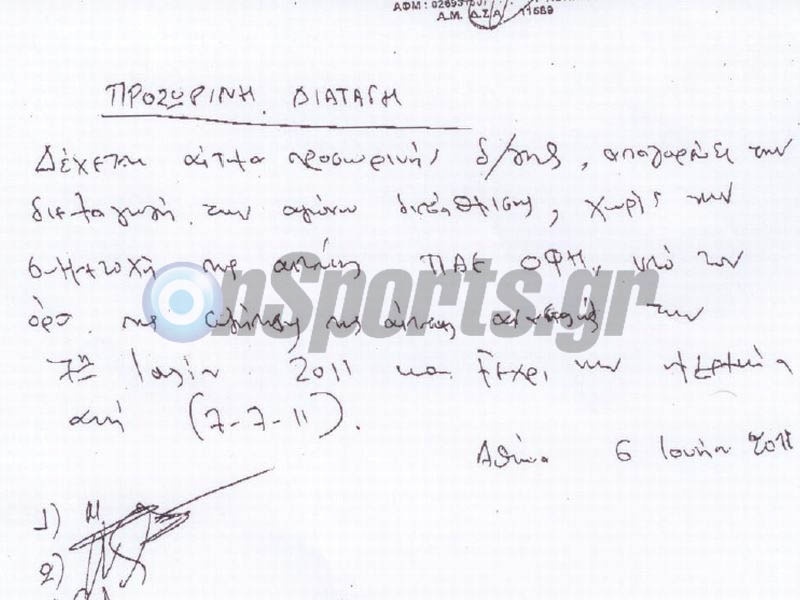 ΑΦΜ : 026931507
Α.Μ. Δ.Σ.Α. 11589
ΠΡΟΣΩΡΙΝΗ ΔΙΑΤΑΓΗ
Δέχεται αίτημα προσωρινής δ/γης, απαγορεύει την
διεξαγωγή των αγώνων διαβάθμισης, χωρίς την
συμμετοχή της αιτούσης ΠΑΕ ΟΦΗ, υπό τον
όρο της συζήτησης της αίτησης την
7η Ιουλίου 2011 και μέχρι την ημερομηνία
αυτή (7-7-11).
Αθήνα 6 Ιουνίου 2011
1)
2)
OnSports.gr